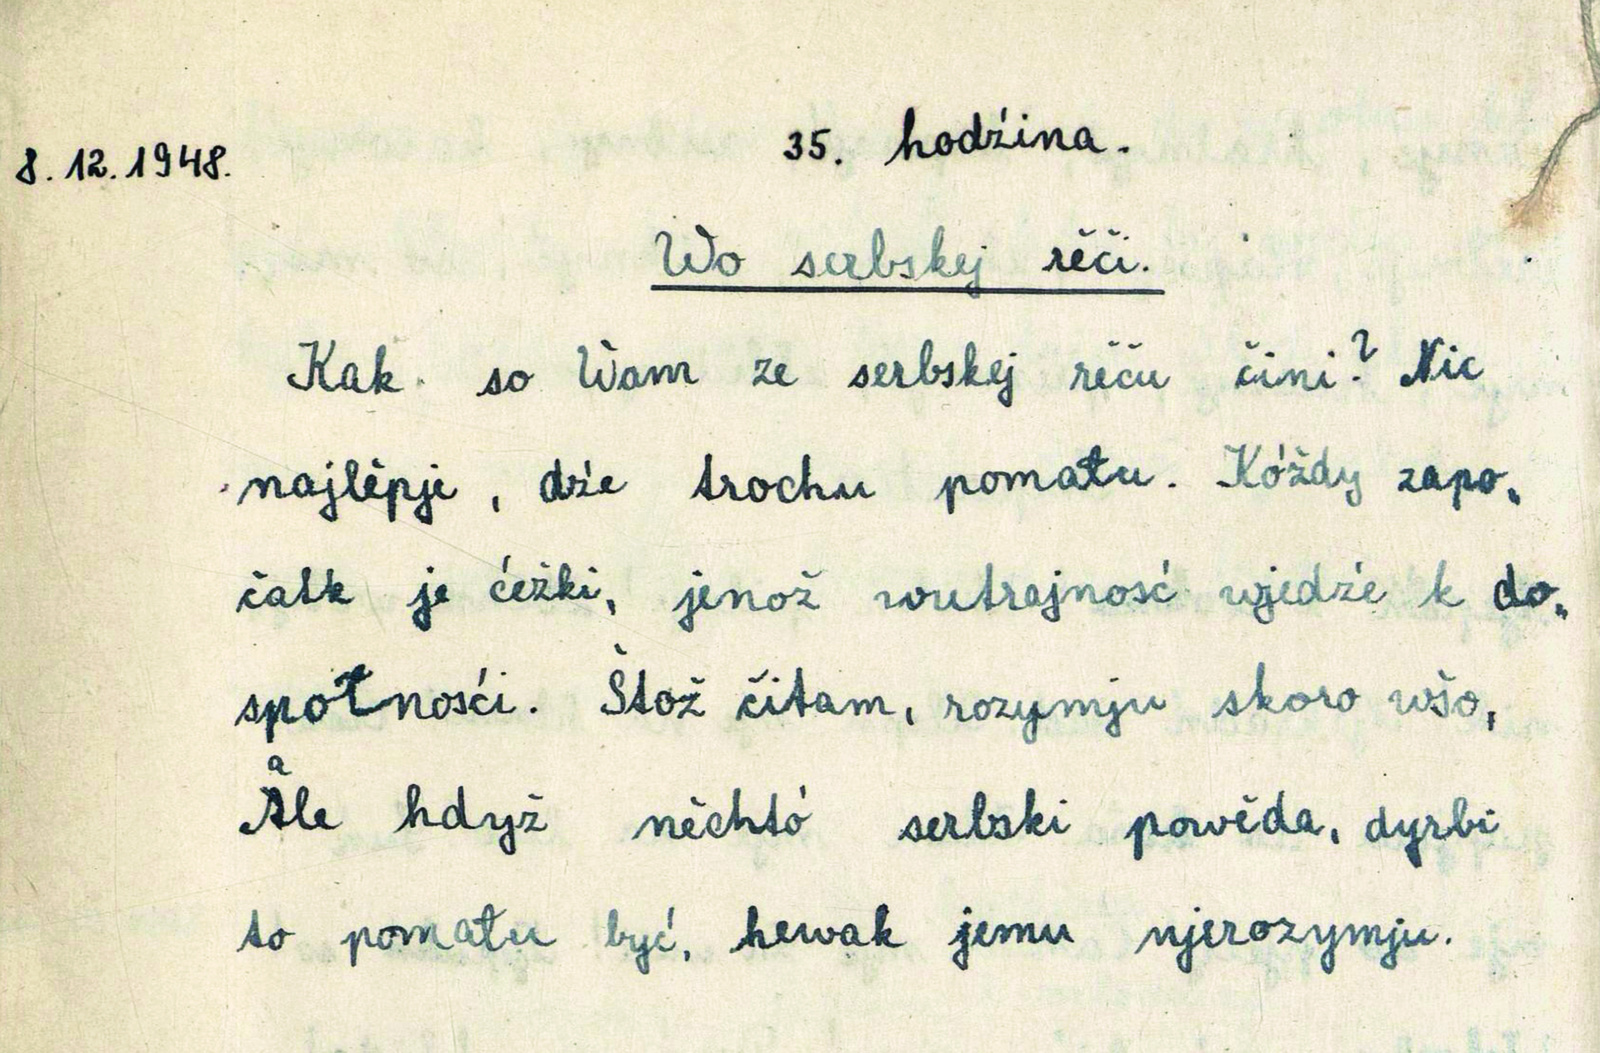 8.12.1948.
35. hodźina.
Wo serbskej rěči.
Kak so Wam ze serbskej rěču čini? Nic
najlěpje, dźe trochu pomału. Kóždy zapo-
čatk je ćežki, jenož wutrajnosć wjedźe k do-
społnosći. Štož čitam, rozymju skoro wšo,
a
Ale hdyž něchtó serbski powěda, dyrbi
to pomału być, hewak jemu njerozymju.